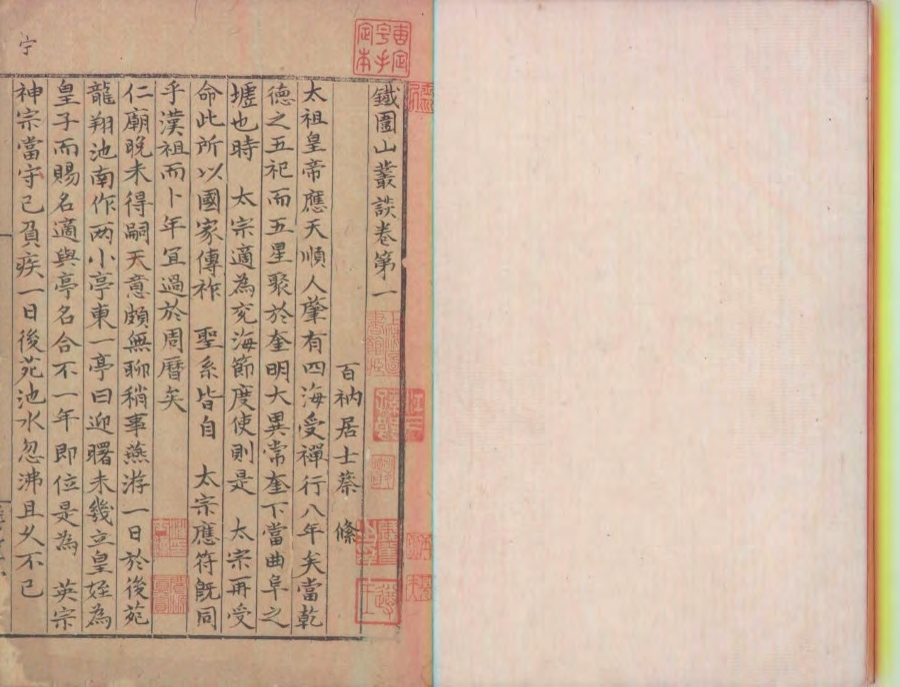 鐵圍山叢談卷第一
百衲居士蔡絛
太祖皇帝應天順人肇有四海受禪行八年矣當乾
德之五祀而五星聚於奎明大異常奎下當曲阜之
墟也時 太宗適為兖海節度使則是 太宗再受
命此所以國家傳祚 聖系皆自 太宗應符既同
乎漢祖而卜年宜過於周曆矣
仁廟晚未得嗣天意頗無聊稍事燕游一日於後苑
龍翔池南作两小亭東一亭曰迎曙未幾立皇姪為
皇子而賜名適與亭名合不一年即位是為 英宗
神宗當守已負疾一日後苑池水忽沸且乆不已
宁